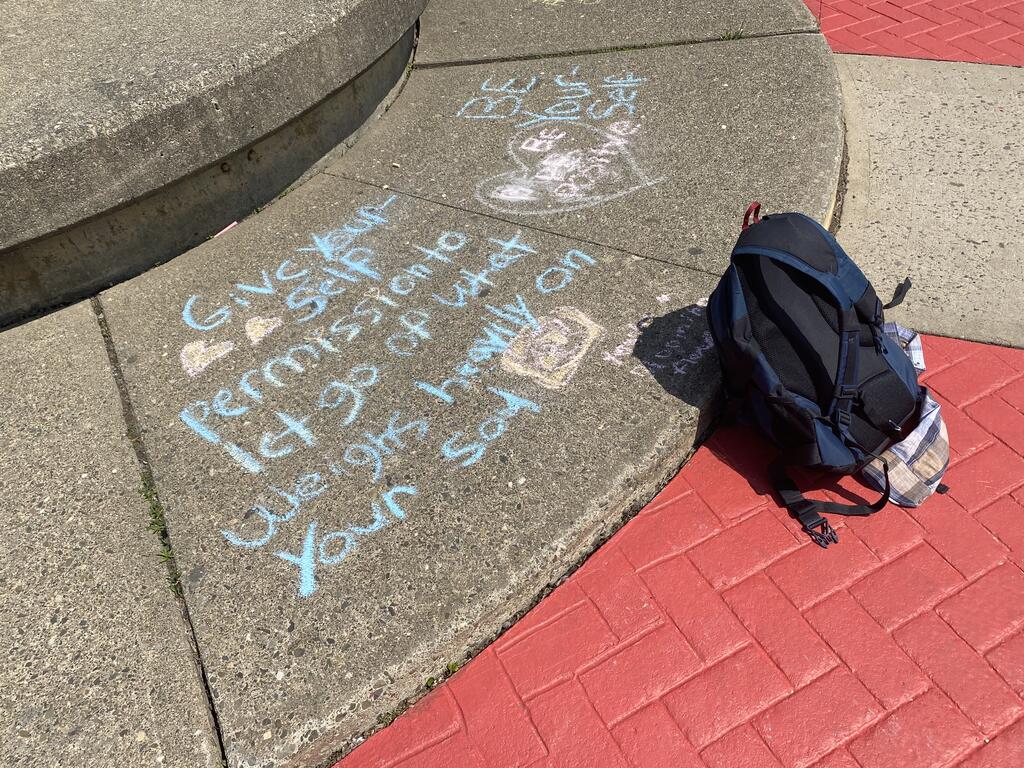 BE
Your
Self
BE
POSITIVE
Give Your
Self
Permission to
let go of what
weighs heavly on
Your Soul